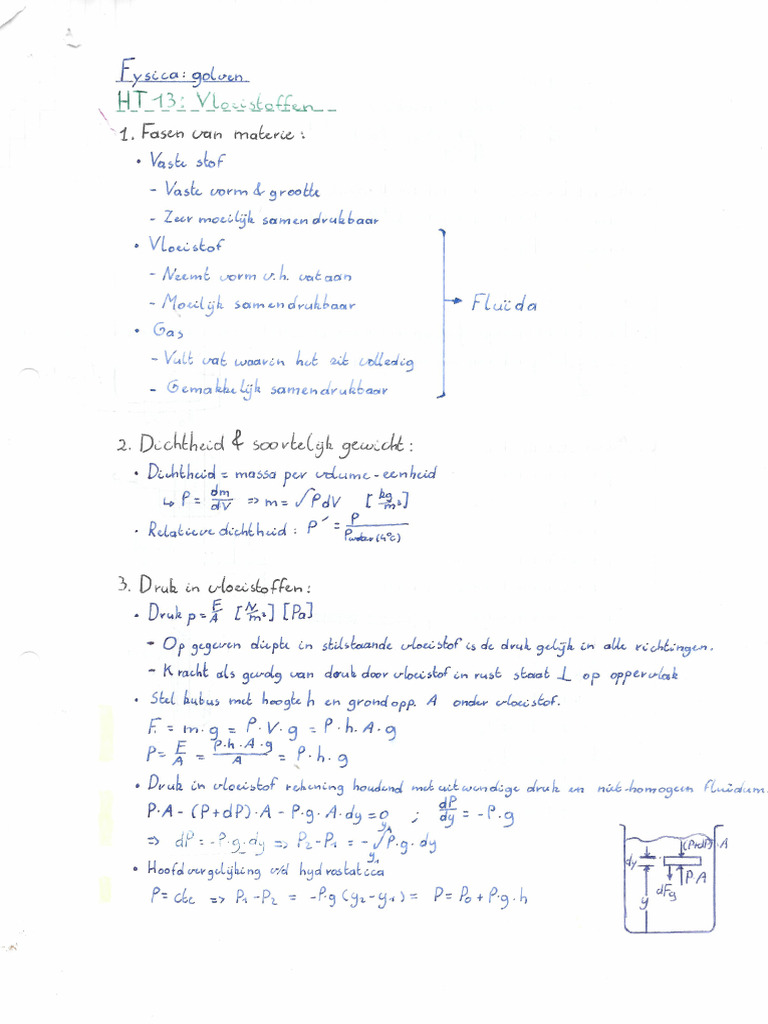 Fysica: golven
HT 13: Vloeistoffen
1. Fasen van materie:
• Vaste stof
- Vaste vorm & grootte
- Zeer moeilijk samendrukbaar
• Vloeistof
- Neemt vorm v.h. vat aan
- Moeilijk samendrukbaar
→ Fluïda
• Gas
- Vult vat waarin het zit volledig
- Gemakkelijk samendrukbaar
2. Dichtheid & soortelijk gewicht:
• Dichtheid = massa per volume-eenheid
↳ ρ = dm/dV => m = ∫ρdV [kg/m³]
• Relatieve dichtheid: ρ' = ρ/ρwater(4°C)
3. Druk in vloeistoffen:
• Druk p = F/A [N/m²] [Pa]
- Op gegeven diepte in stilstaande vloeistof is de druk gelijk in alle richtingen.
- Kracht als gevolg van druk door vloeistof in rust staat ⊥ op oppervlak
• Stel kubus met hoogte h en grondopp. A onder vloeistof.
F = m·g = ρ·V·g = ρ·h·A·g
P = F/A = ρ·h·A·g/A = ρ·h·g
• Druk in vloeistof rekening houdend met uitwendige druk en niet-homogeen fluïdum.
P·A - (P+dP)·A - ρ·g·A·dy = 0 ; dP/dy = -ρ·g
=> dP = -ρ·g·dy => P₂-P₁ = -∫ρ·g·dy
• Hoofdvergelijking v/d hydrostatica
ρ = cte => P₁-P₂ = -ρ·g(y₂-y₁) = P = P₀ + ρ·g·h
(P+dP)·A
dy
P·A
dFg
y